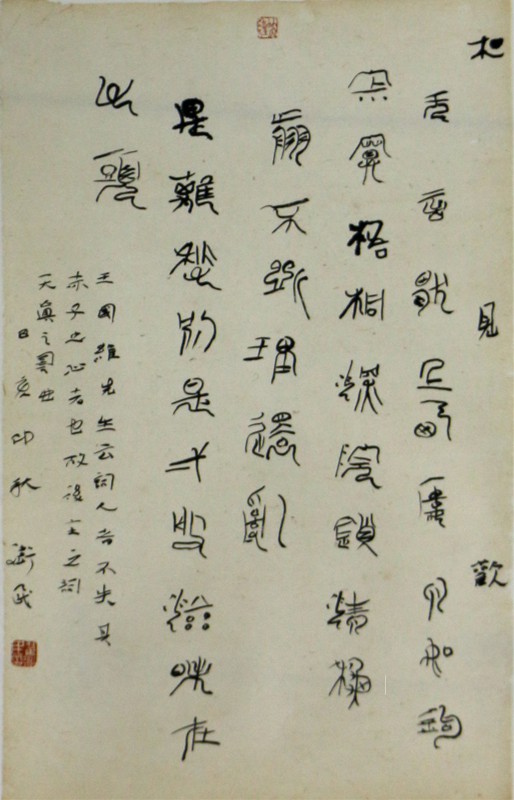 相見歡
无言獨上西樓月如鉤
寂寞梧桐深院鎖清秋
剪不斷理還亂
是離愁別是一般滋味在
心頭
王國維先生云詞人者不失其
赤子之心者也故後主之詞
天真之詞也
亥仲秋